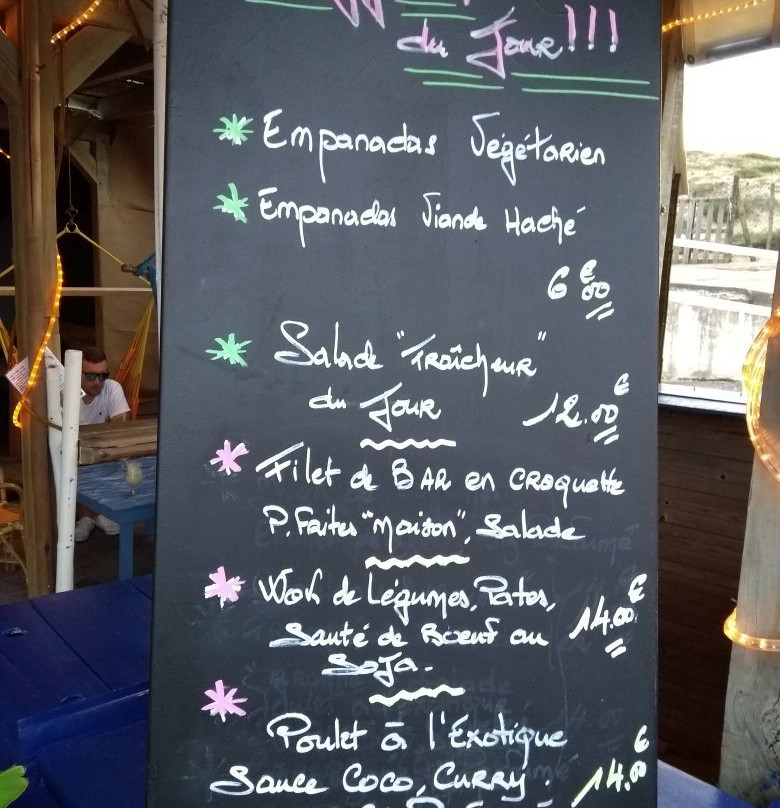 du Jour!!!
* Empanadas Végétarien
* Empanadas Viande Haché
6€00
* Salade "Fraîcheur"
du Jour 12.00€
* Filet de BAR en CROQuette
P. Faites "maison", Salade
* Wok de Légumes, Pates, 14.00€
Sauté de Bœuf au
Soja.
* Poulet à l'Exotique
Sauce COCO, CURRY. 14.00€